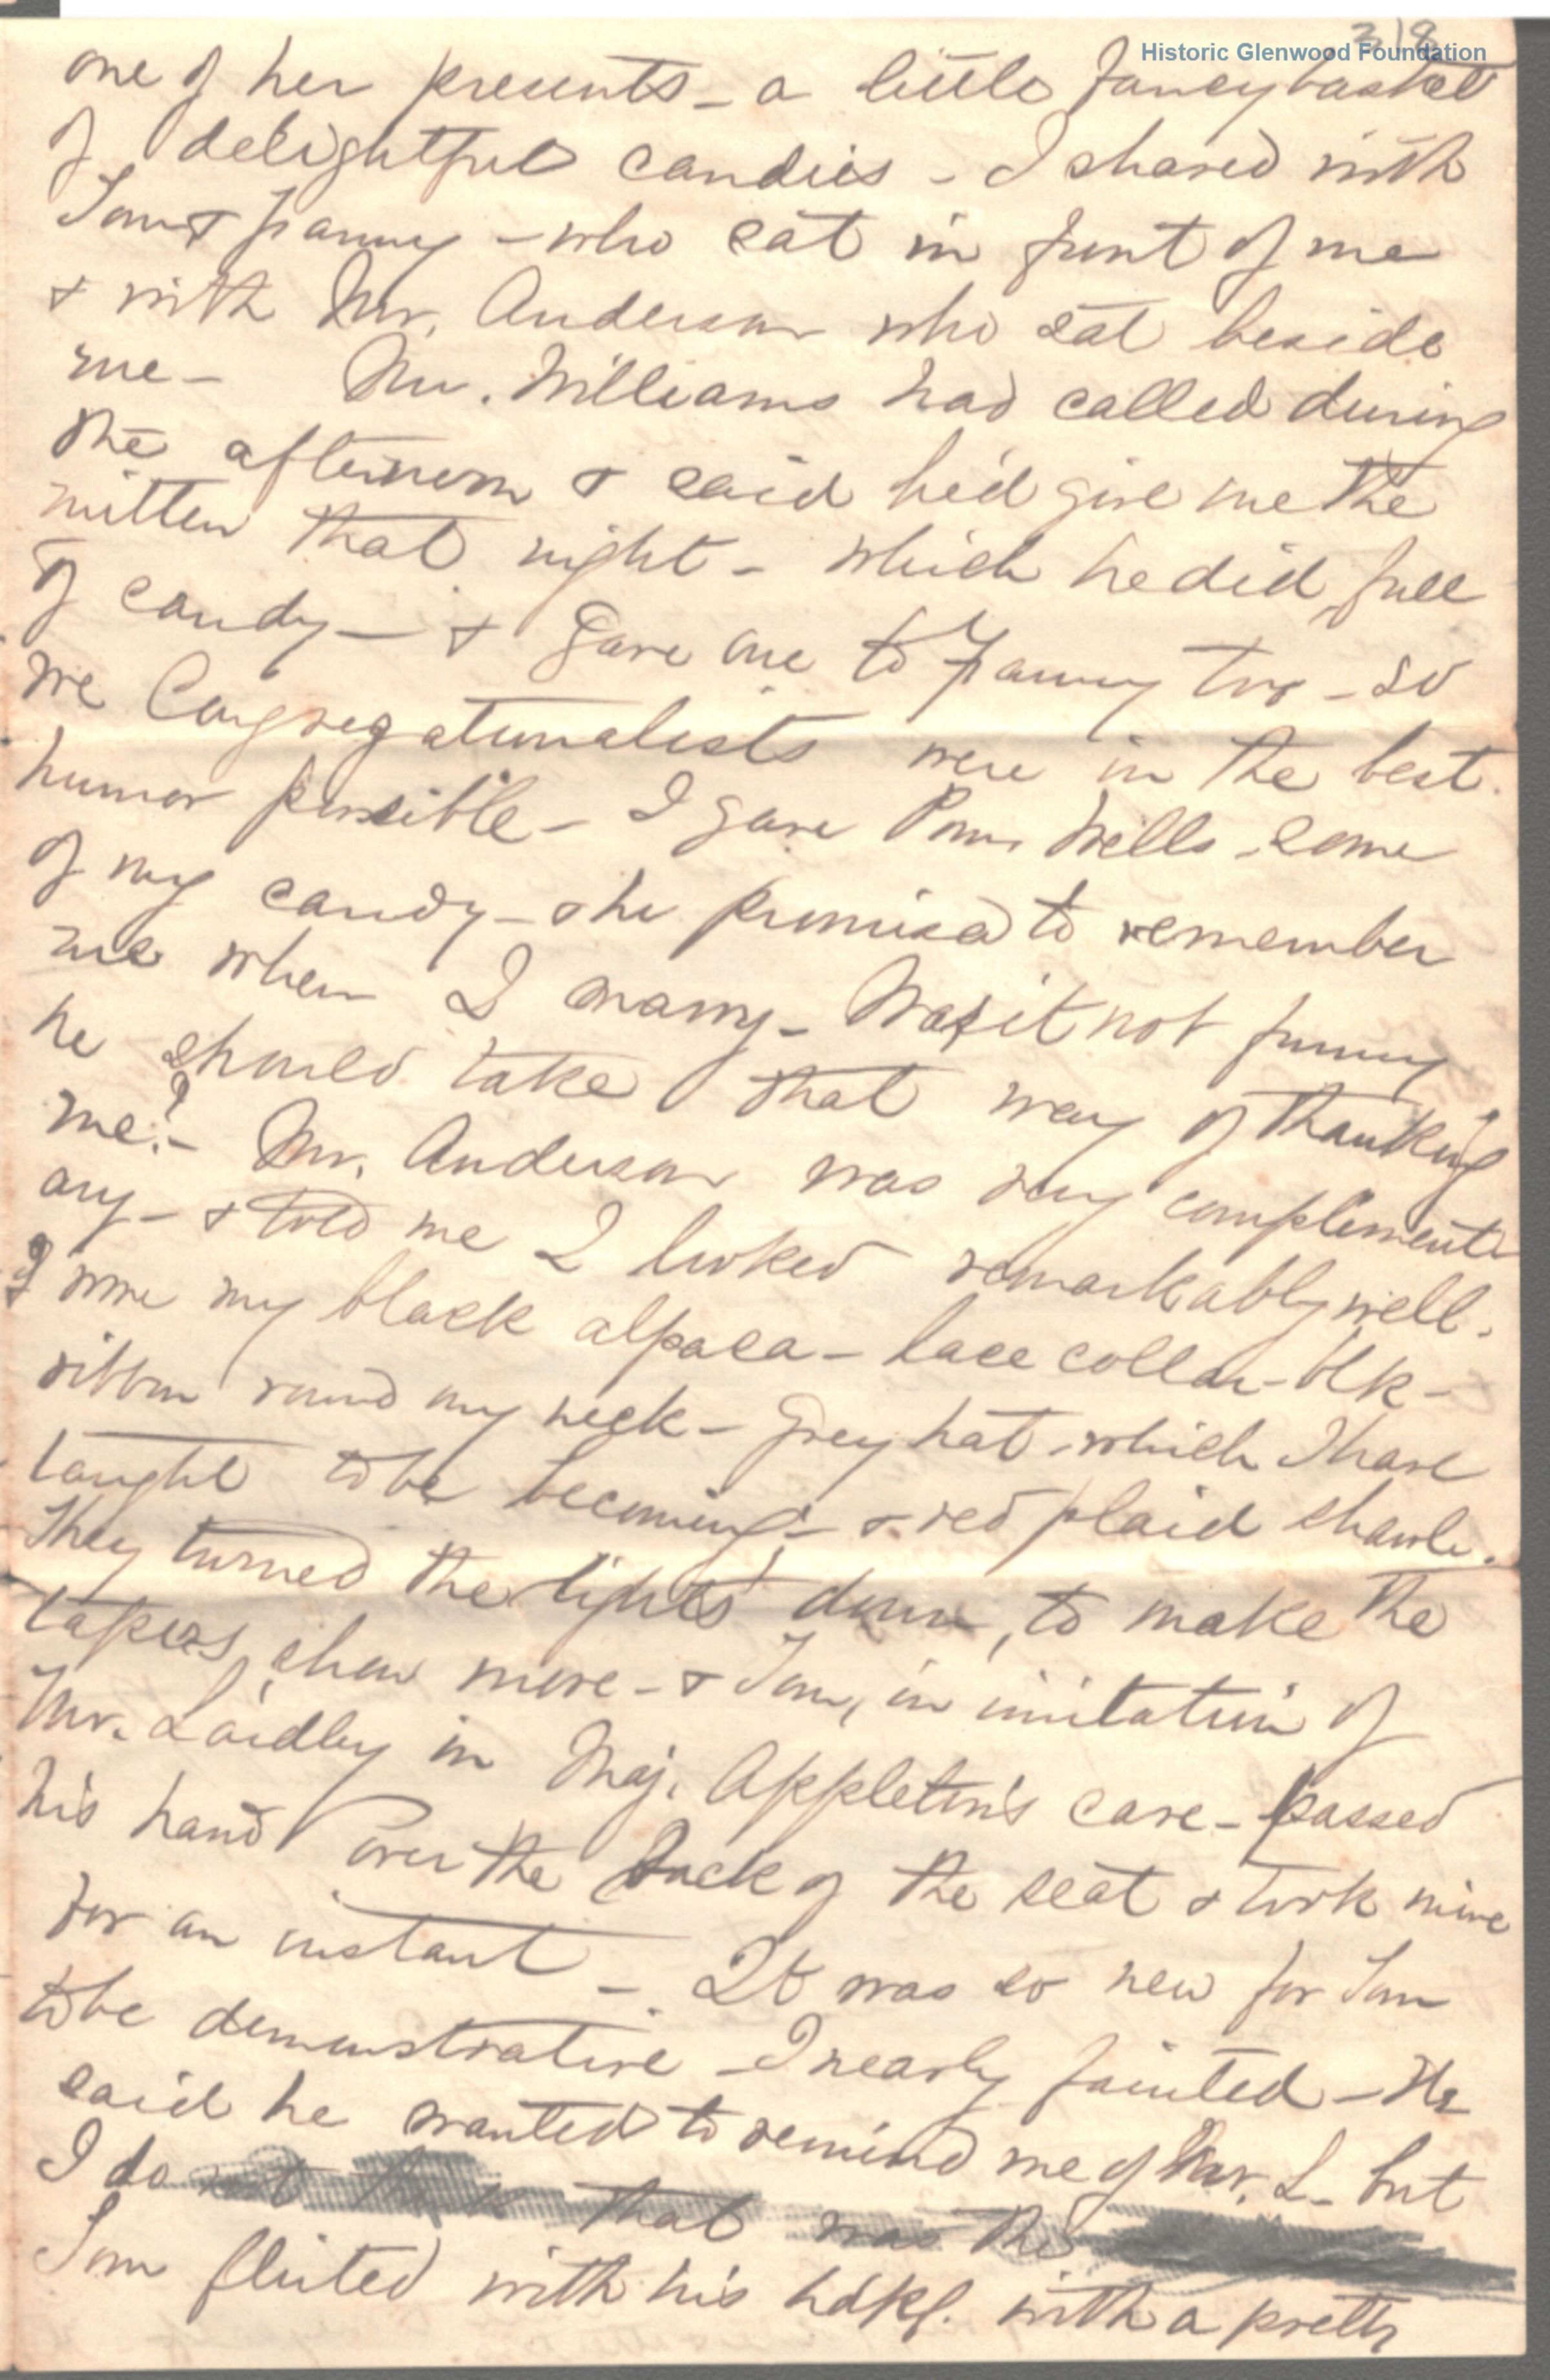 318
Historic Glenwood Foundation
one of her presents - a little fancy basket
of delightful candies - I shared with
Tom & Fanny - who sat in front of me
& with Mr. Anderson who sat beside
me - Mr. Williams had called during
the afternoon & said he'd give me the
mitten that night - which he did full
of candy - & gave one to Fanny too - so
we Congregationalists were in the best
humor possible - I gave Wells some
of my candy - & he promised to remember
me when I marry - Was it not funny
he should take that way of thanking
me? - Mr. Anderson was very compliment
ary - & told me I looked remarkably well.
I wore my black alpaca - lace collar - blk -
ribbon round my neck - Grey hat - which I have
taught to be becoming - & red plaid shawl.
They turned the lights down, to make the
tapers show more - & Tom, in imitation of
Mr. Laidley in Maj. Appleton's case - passed
his hand over the back of the seat & took mine
for an instant - It was so new for Tom
to be demonstrative - I nearly fainted - He
said he wanted to remind me of Mr. L - but
I do not think that was the
Tom flirted with his hdkf. with a pretty